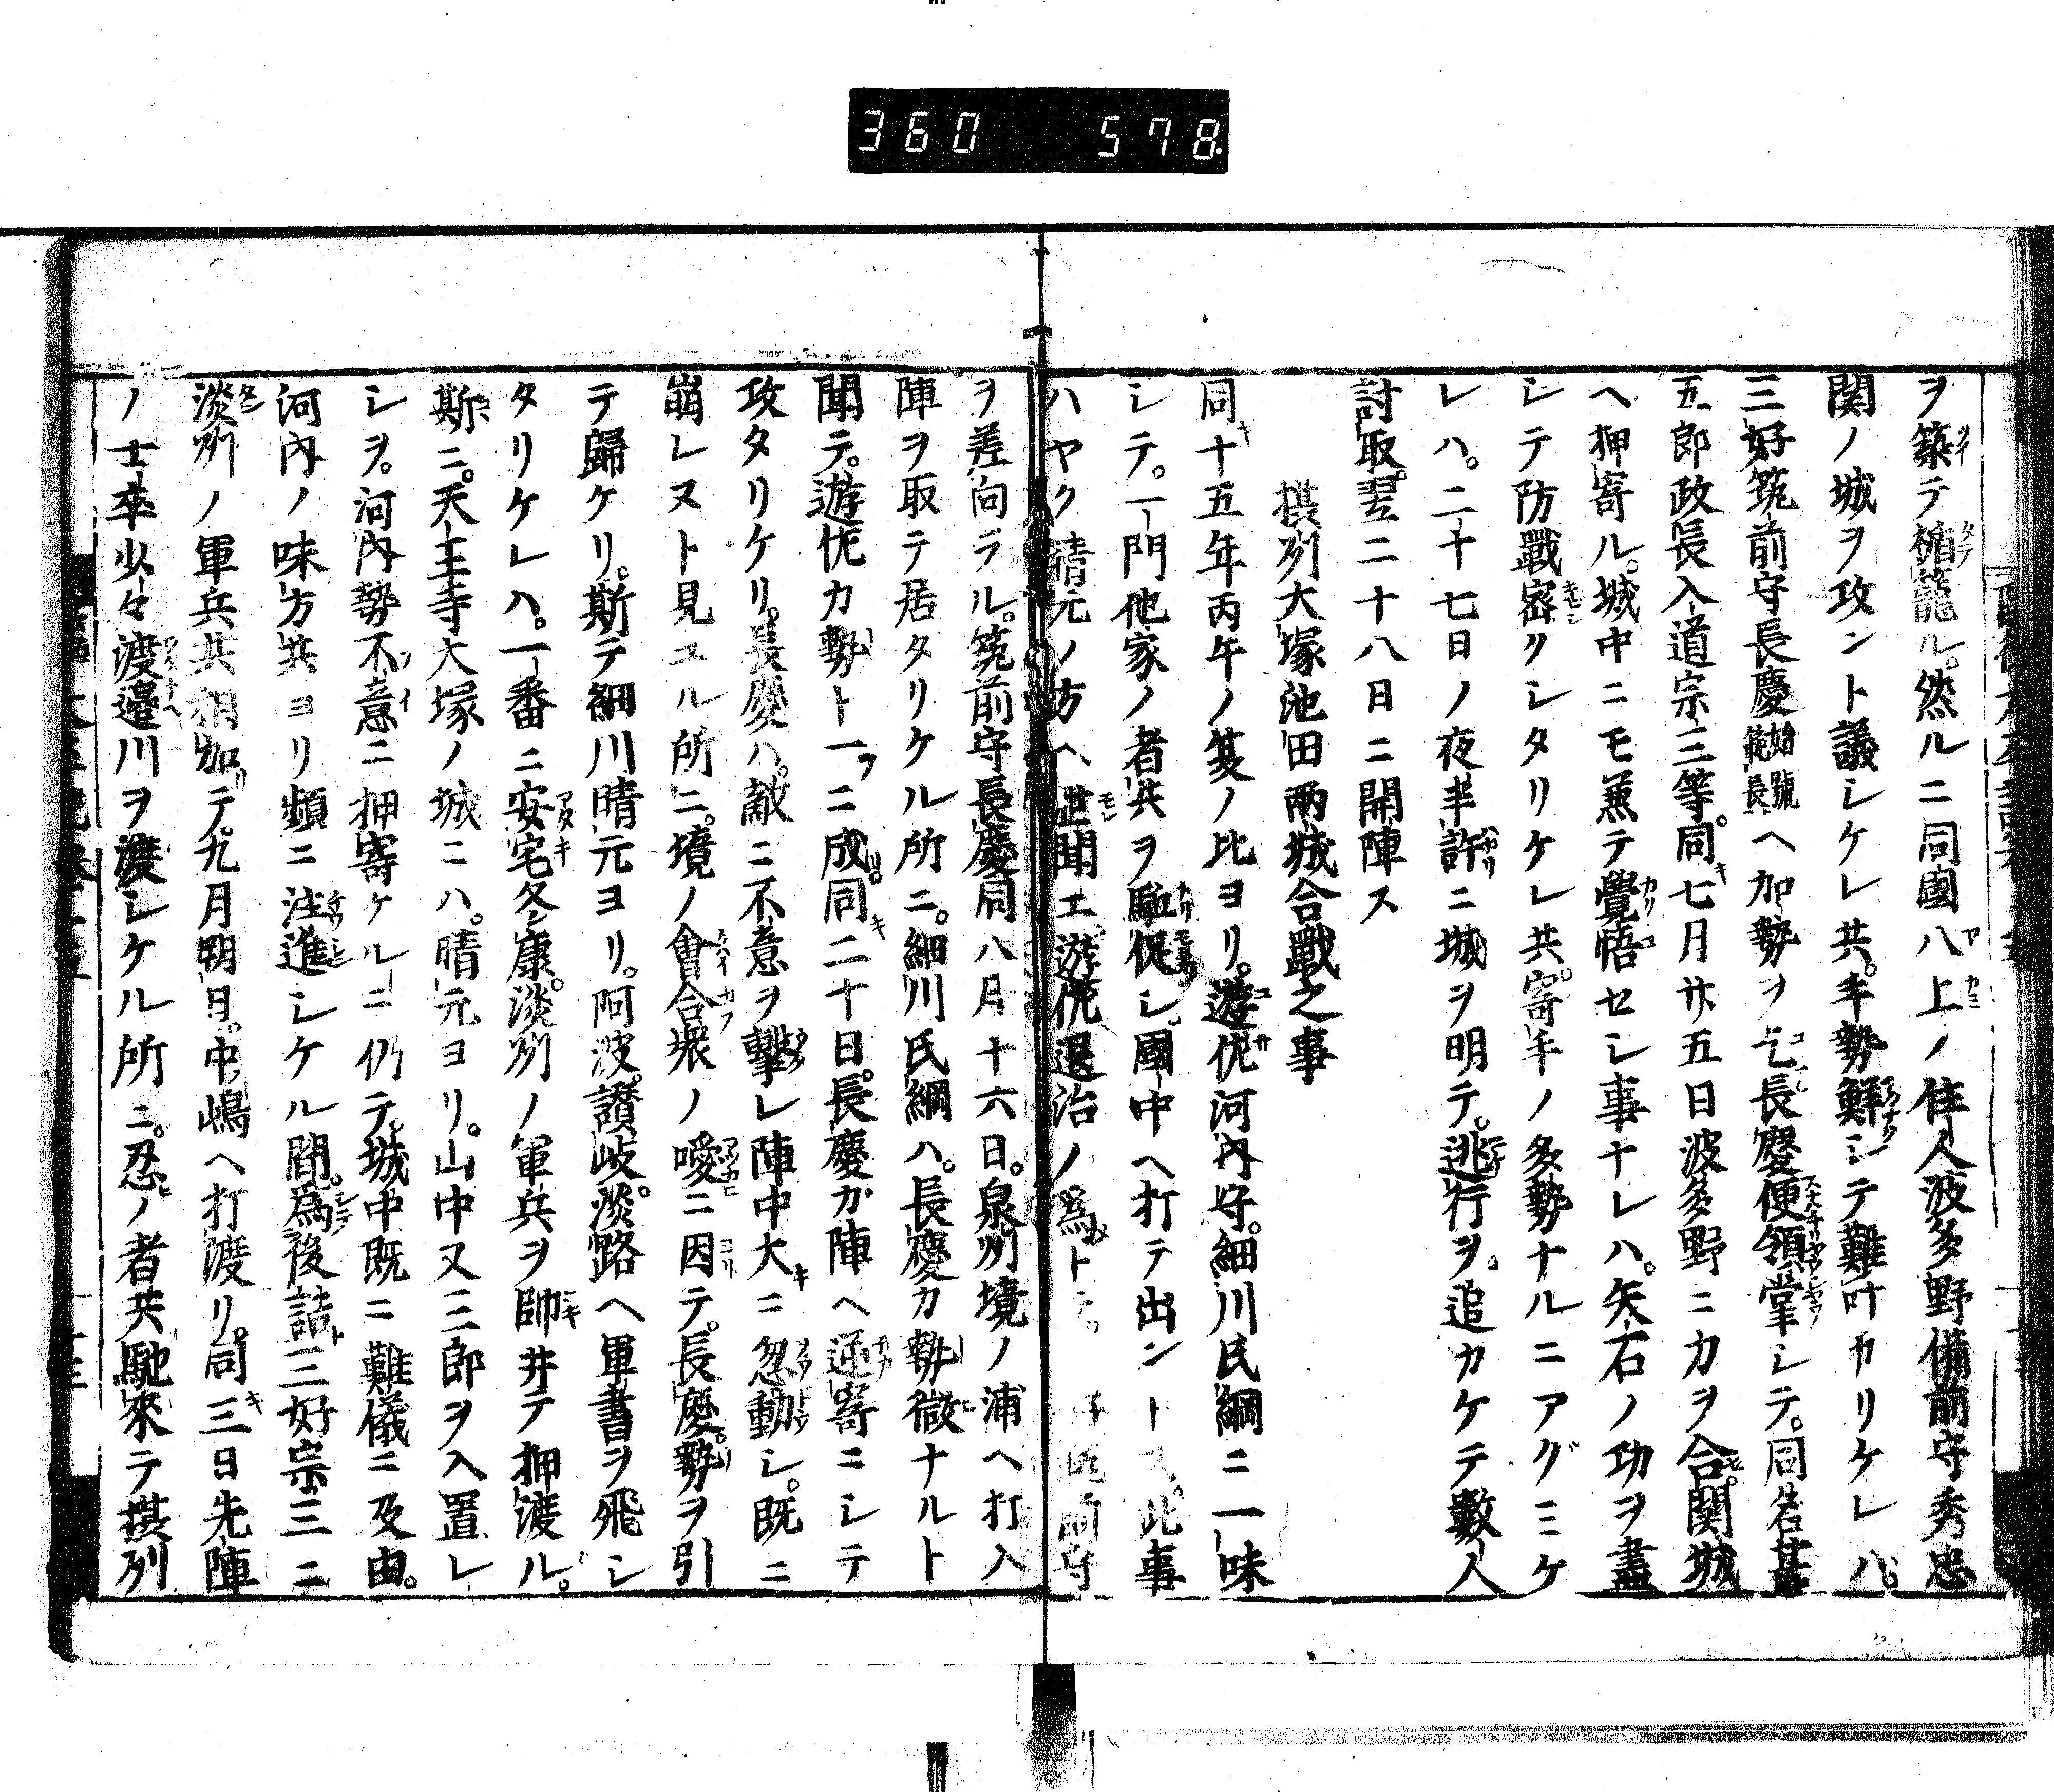 360 578
ヲ築テ楯籠ル。然ルニ同國八上ノ住人波多野備前守秀忠
関ノ城ヲ攻ント議シケレ共。手勢鮮シテ難叶カリケレハ。
三好筑前守長慶始號範長ヘ加勢ヲ乞。長慶便領掌シテ。同名甚
五郎政長入道宗三等。同七月廿五日波多野ニカヲ合。関城
ヘ押寄ル。城中ニモ兼テ覺悟セシ事ナレハ。矢石ノ功ヲ盡
シテ防戰密クシタリケレ共。寄手ノ多勢ナルニアグミケ
レハ。二十七日ノ夜半許ニ城ヲ明テ。逃行ヲ。追カケテ數人
討取。翌二十八日ニ開陣ス
攝刕大塚池田兩城合戰之事
同十五年丙午ノ夏ノ比ヨリ。遊佐河内守。細川氏綱ニ一味
シテ。一門他家ノ者共ヲ駈促シ。國中ヘ打テ出ントス。此事
ハヤク晴元ノ方ヘ世聞エ。遊佐退治ノ爲トテ。前守
ヲ差向ラル。筑前守長慶同八月十六日。泉刕境ノ浦ヘ打入
陣ヲ取テ居タリケル所ニ。細川氏綱ハ。長慶カ勢微ナルト
聞テ。遊佐カ勢ト一ツニ成。同二十日。長慶ガ陣ヘ逐寄ニシテ
攻タリケリ。長慶ハ。敵ニ不意ヲ撃レ陣中大ニ忽動シ。既ニ
崩レヌト見ユル所ニ。境ノ會合衆ノ噯ニ因テ。長慶勢ヲ引
テ歸ケリ。斯テ細川晴元ヨリ。阿波。讃岐。淡路ヘ軍書ヲ飛シ
タリケレハ。一番ニ安宅冬康。淡刕ノ軍兵ヲ帥井テ押渡ル。
斯ニ。天王寺大塚ノ城ニハ。晴元ヨリ。山中又三郎ヲ入置レ
シヲ。河内勢不意ニ押寄ケルニ仍テ。城中既ニ難儀ニ及由。
河内ノ味方共ヨリ頻ニ注進シケル間。為後詰三好宗三ニ
淡刕ノ軍兵共相加テ。九月朔日。中嶋ヘ打渡リ。同三日先陣
ノ士卒少々渡邉川ヲ渡シケル所ニ。忍ノ者共馳來テ摂刕